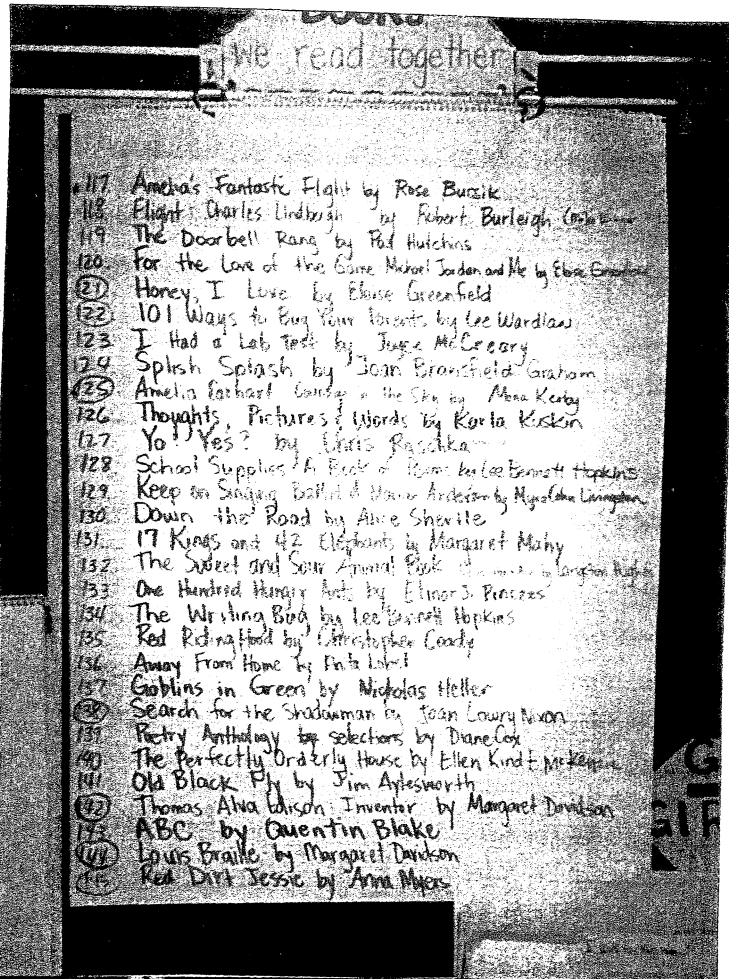 Books
We read together
117 Amelia's Fantastic Flight by Rose Bursik
118 Flight: Charles Lindbergh by Robert Burleigh
119 The Doorbell Rang by Pat Hutchins
120. For the Love of the Game Michael Jordan and Me by Eloise Greenfield
121 Honey, I Love by Eloise Greenfield
122 101 Ways to Bug Your Parents by Lee Wardlaw
123 I Had a Lab Test by McCreary
124 Splish Splash by Joan Bransfield Graham
125 Amelia Earhart Courage in the Sky by Mona Kerby
126 Thoughts, Pictures & Words by Karla Kuskin
127 Yo! Yes? by Chris Raschka
128 School Supplies A Book of Poems by Lee Bennett Hopkins
129 Keep on Singing Ballad of Marian Anderson by Myra Cohn Livingston
130 Down the Road by Alice Shertle
131. 17 Kings and 42 Elephants by Margaret Mahy
132 The Sweet and Sour Animal Book by Langston Hughes
133 One Hundred Hungry Ants by Elinor J. Pinczes
134 The Writing Bug by Lee Bennett Hopkins
135 Red Riding Hood by Christopher Coady
136 Away From Home by Anita Lobel
137 Goblins in Green by Nicholas Heller
138 Search for the Shadowman by Joan Lowry Nixon
139 Poetry Anthology by selections by Diane Cox
140 The Perfectly Orderly House by Ellen Kindt McKenzie
141 Old Black Fly by Jim Aylesworth
142 Thomas Alva Edison: Inventor by Margaret Davidson
143 ABC by Quentin Blake
144 Louis Braille by Margaret Davidson
145 Red Dirt Jessie by Anna Myers
G
GIR